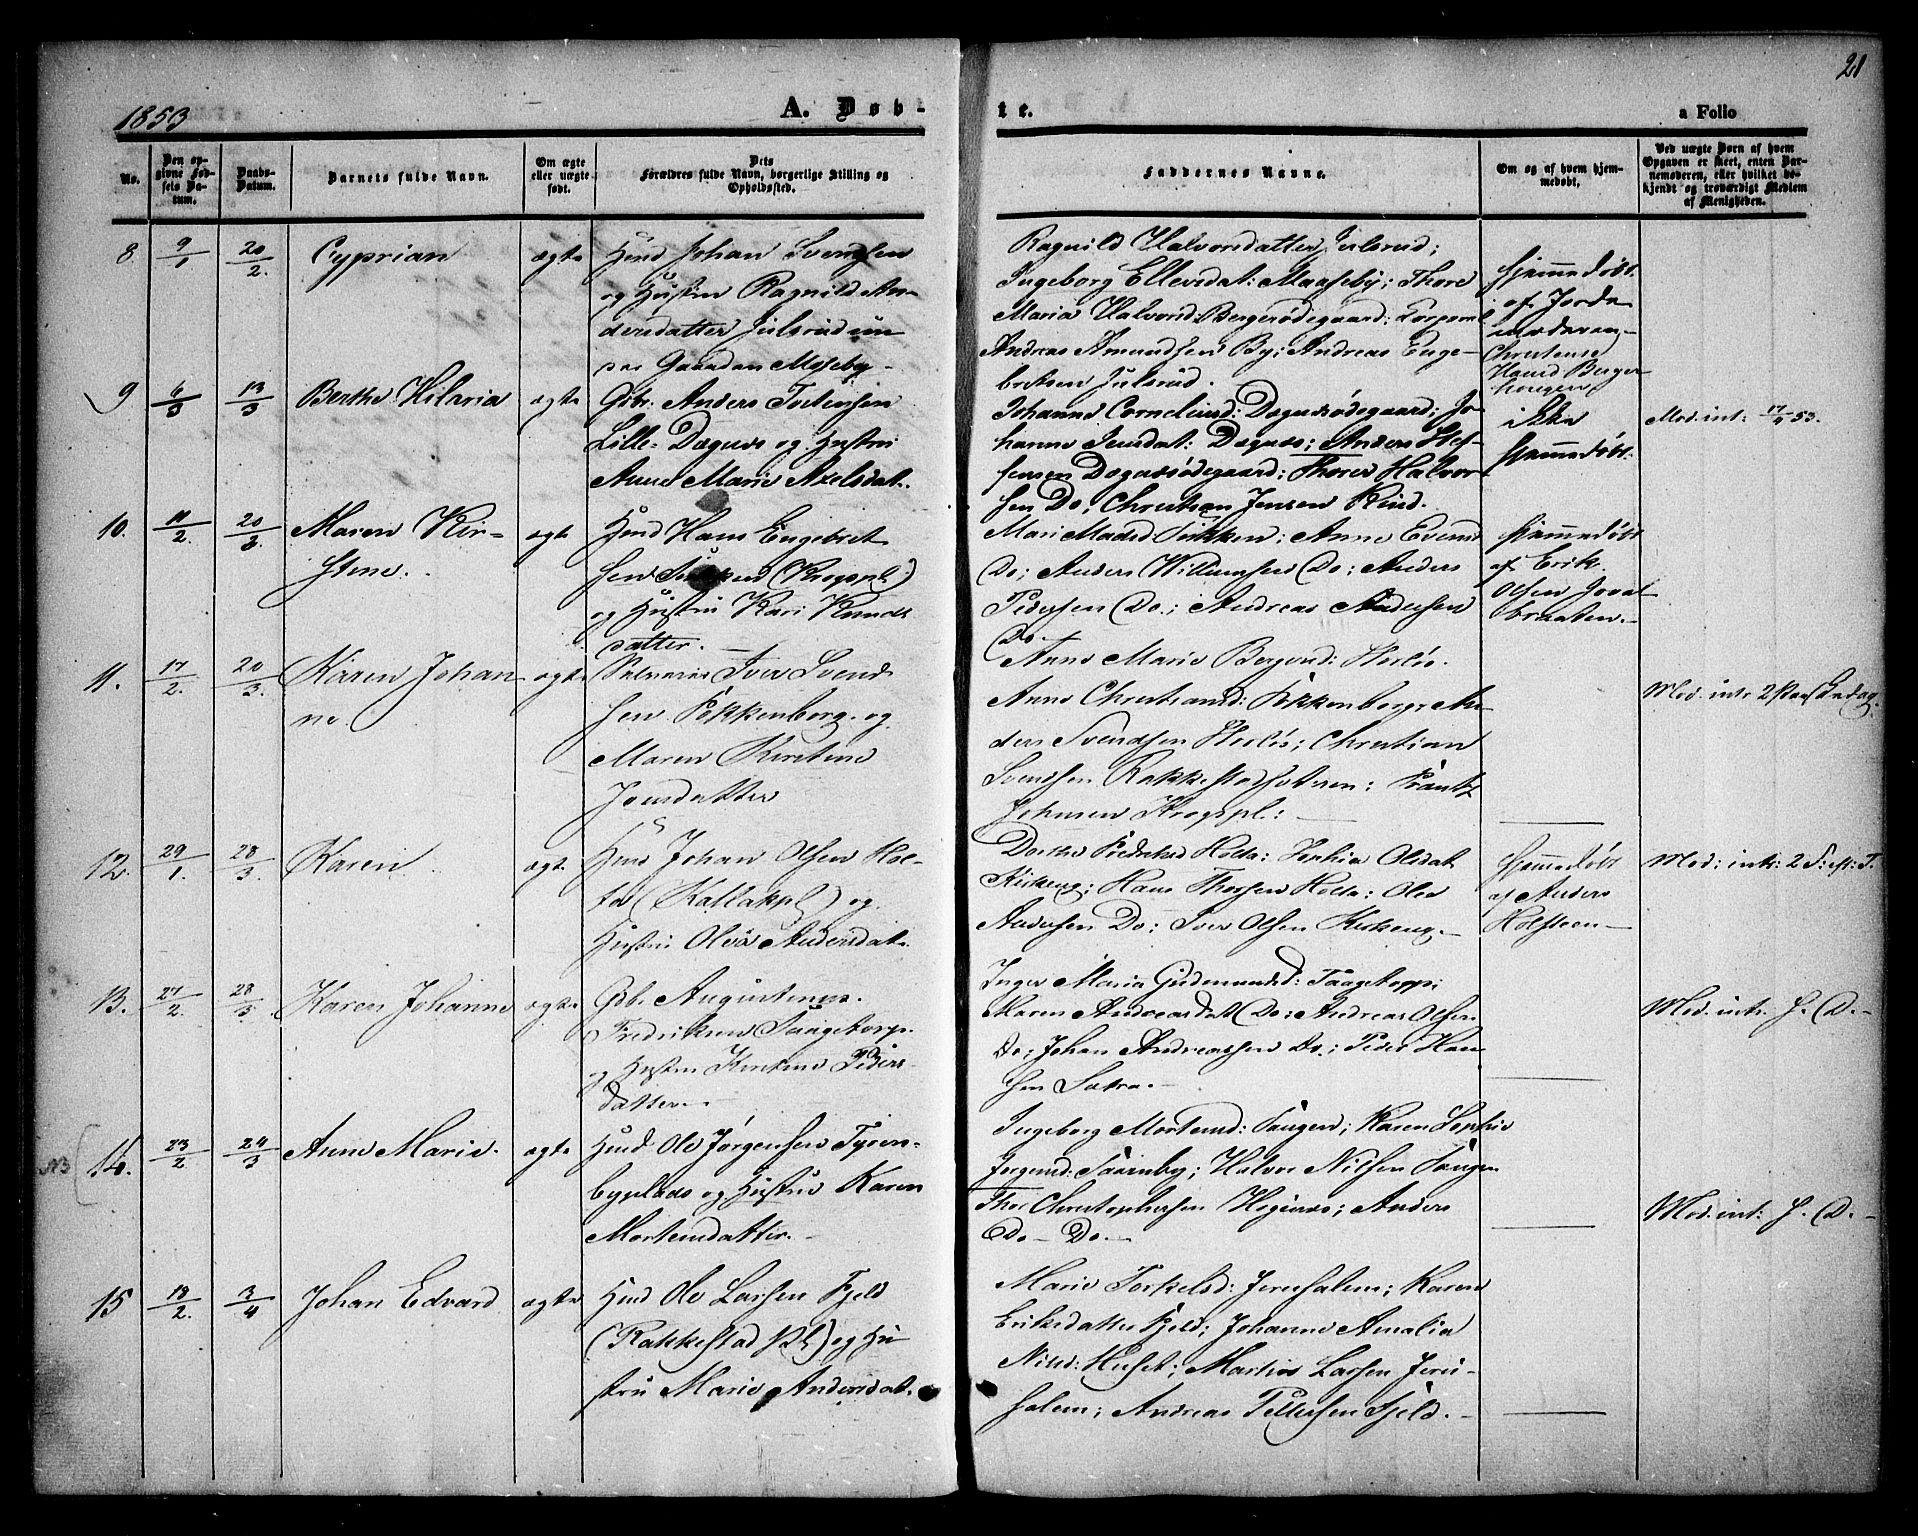 1853
A. Døb-
te.
a Folio
21
No.
Den op-
givne Fød-
sels Da-
tum.
Daabs-
Datum.
Barnets fulde Navn.
Om ægte
eller uægte
født.
Dets
Forældres fulde Navn, borgerlige Stilling og
Opholdssted.
Faddernes Navne.
Om og af hvem hjem-
medøbt.
Ved uægte Børn af hvem
Opgaven er skeet, enten Bar-
nemoderen, eller hvilket be-
kjendt og troværdigt Medlem
af Menigheden.
8 9/1 20/2 Cyprian ægte
Huusm. Johan Svendsen
og Hustru Ragnild An-
dersdatter Julsrud un-
der Gaarden Moseby-
Ragnild Halvorsdatter Julsrud;
Ingeborg Ellevsdat: Maaseby; Thore
Maria Halvorsd: Bergerødegaard: Korporal
Andreas Amundsen By; Andreas Enge-
bretsen Julsrud.
Hjemmedøbt
af Jorde-
moderen
Christense
Haurd Berger
hougen
9 6/3 13/3 Berthe Hilaria ægte
Gbr. Anders Tostensen
Lille- Dægnæs og Hustru
Anne Marie Axelsdat.
Johanne Corneliusd: Dægnæsødegaard; Jo-
hanne Jensdat: Dægnæs; Anders
Jensen Dægnæsødegaard; Thorer Halvor-
sen Do; Christian Jensen Rud.
ikke
hjemmedøbt.
Mod. int: 17/4 53.
10. 11/2. 20/3. Maren Kir-
stine. ægte
Huusm. Hans Engebret-
sen (Krogspl.)
og Hustru Kari Knuds
datter. -
Mari Madsd. Anne Evensd
Do; Anders Willumsen Do; Anders
Pedersen Do; Andreas Andersen
Do
Hjemmedøbt
af Erik
Olsen
braaten.-
11. 17/2. 20/3. Karen Johan-
ne. ægte
Iver Svend-
sen Kikkenborg og
Maren Kirstine
Jonsdatter
Anne Marie Bergend: Herlös.
Anne Christiansd: Kikkenborg; An-
ders Svendsen Herlös; Christian
Svendsen Rakkestad Frantz
Johnsen Krogspl.:
Mod. intr. 2 Paaskedag
12. 29/1. 28/3. Karen ægte
Huusm. Johan Olsen Hol-
ta (Kallakpl) og
Hustru Olea Andersdat.
Dorthe Fredriksd Holta: Sophia Olsdat
Kirkeng; Hans Thorsen Holta: Ole
Andersen Do; Iver Olsen Kirkeng.-
Hjemmedøbt
af Anders
Holsteen-
Mod: intr: 2 S: eft: T.
13. 27/2. 28/3. Karen Johanne ægte
Gbr. Augustinus
Fredriksen
og Hustru Kirstine Peders-
datter.-
Inger Maria Gudmundsd:
Maren Andreasdat Do; Andreas Olsen
Do; Johan Andreassen Do; Peder Han-
sen Sætra.-
Mod. intr. S. D.-
NB
14. 23/2 24/3 Anne Marie. ægte
Huusm. Ole Jørgensen
byplads og Hustru Karen
Mortensdatter.-
Ingeborg Mortensd: Karen Sophie
Jørgensd: Halvor Nilsen
Thor Christophersen Anders
Do- Do.-
Mod. int: S. D.-
15 13/2. 3/4 Johan Edvard ægte
Huusm Ole Larsen Fjeld
(Rakkestad Pl) og Hu-
stru Marie Andersdat.
Marie Torkelsd: Jerusalem; Karen
Eriksdatter Fjeld; Johanne Amalia
Nilsd: Huset; Martius Larsen Jeru-
salem; Andreas Pettersen Fjeld.-